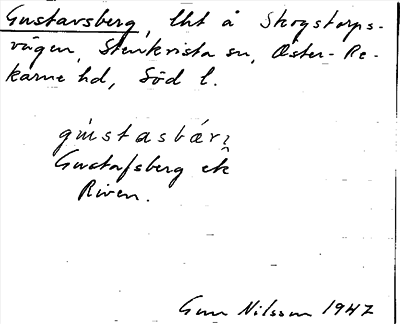 Gustavsberg, lht å Skogstorps-
vägen, Stenkvista sn, Öster-Re-
karne hd, Söd l.
gustasbärj
Gustafsberg ek
Riven.
Gun Nilsson 1947